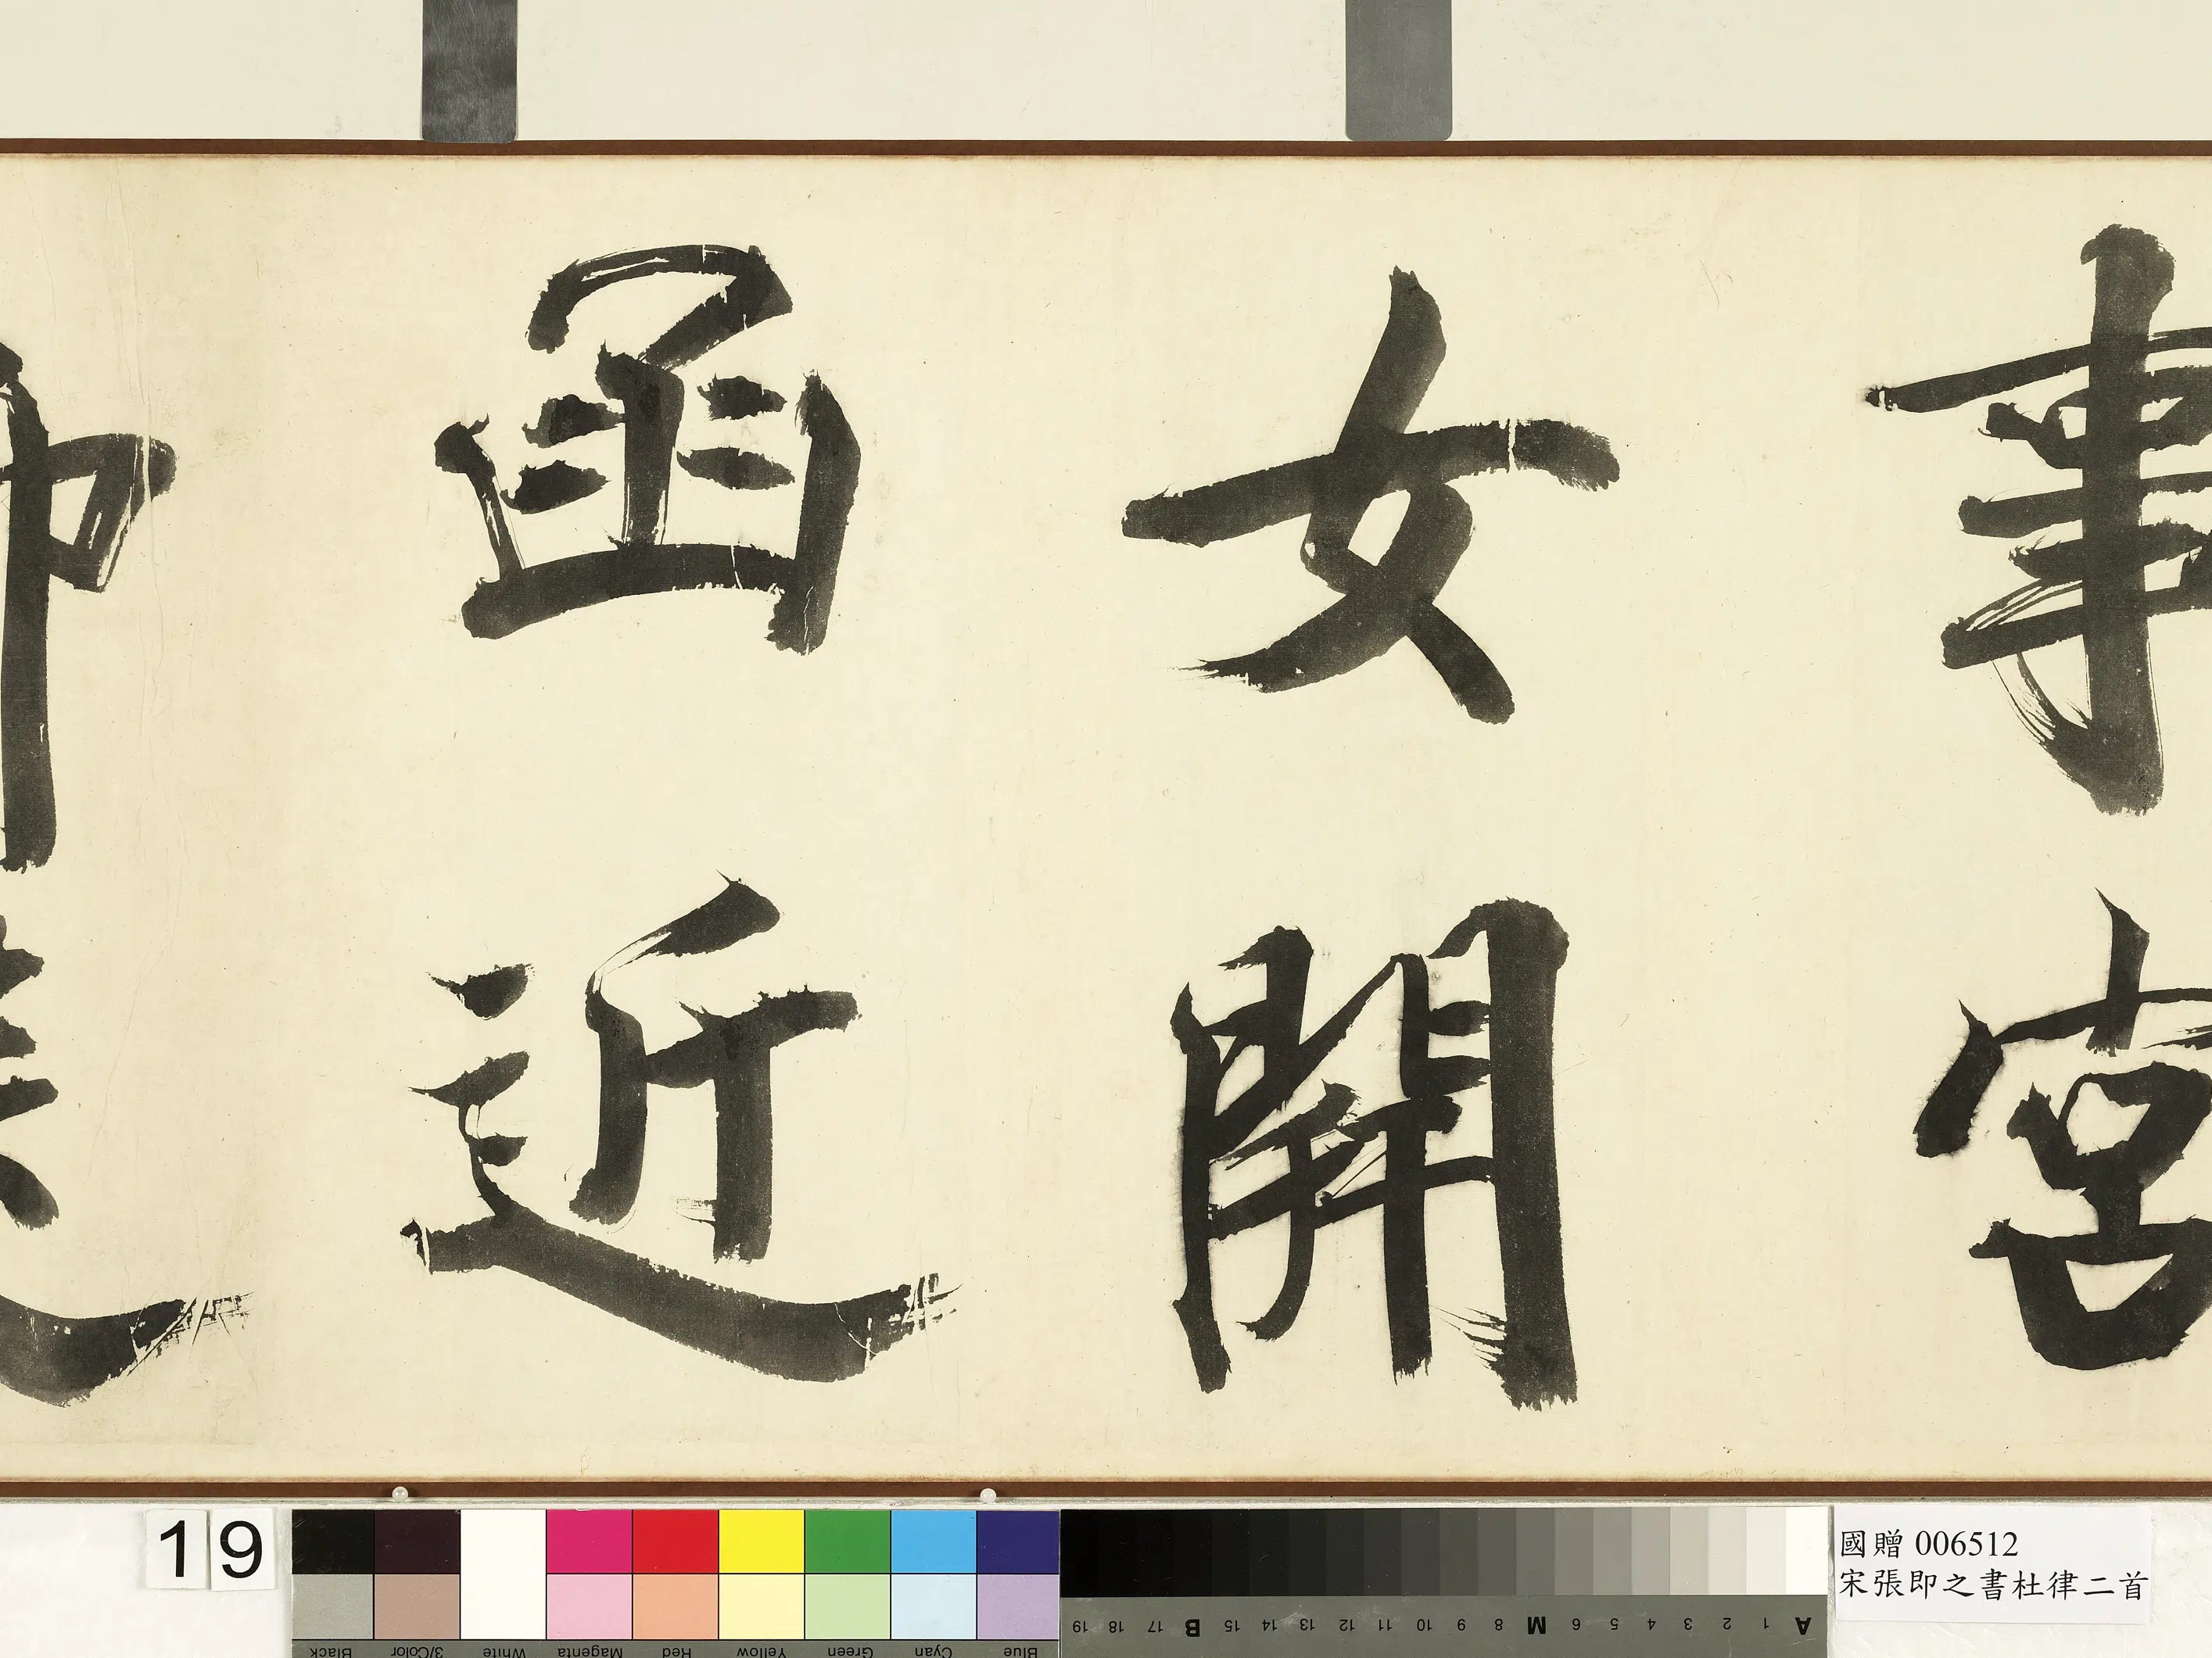 事宮
女開
函近
19
A 1 2 3 4 5 6 M 8 9 10 11 12 13 14 15 B 17 18 19
Blue Cyan Green Yellow Red Magenta White 3/Color Black
國贈 006512
宋張即之書杜律二首